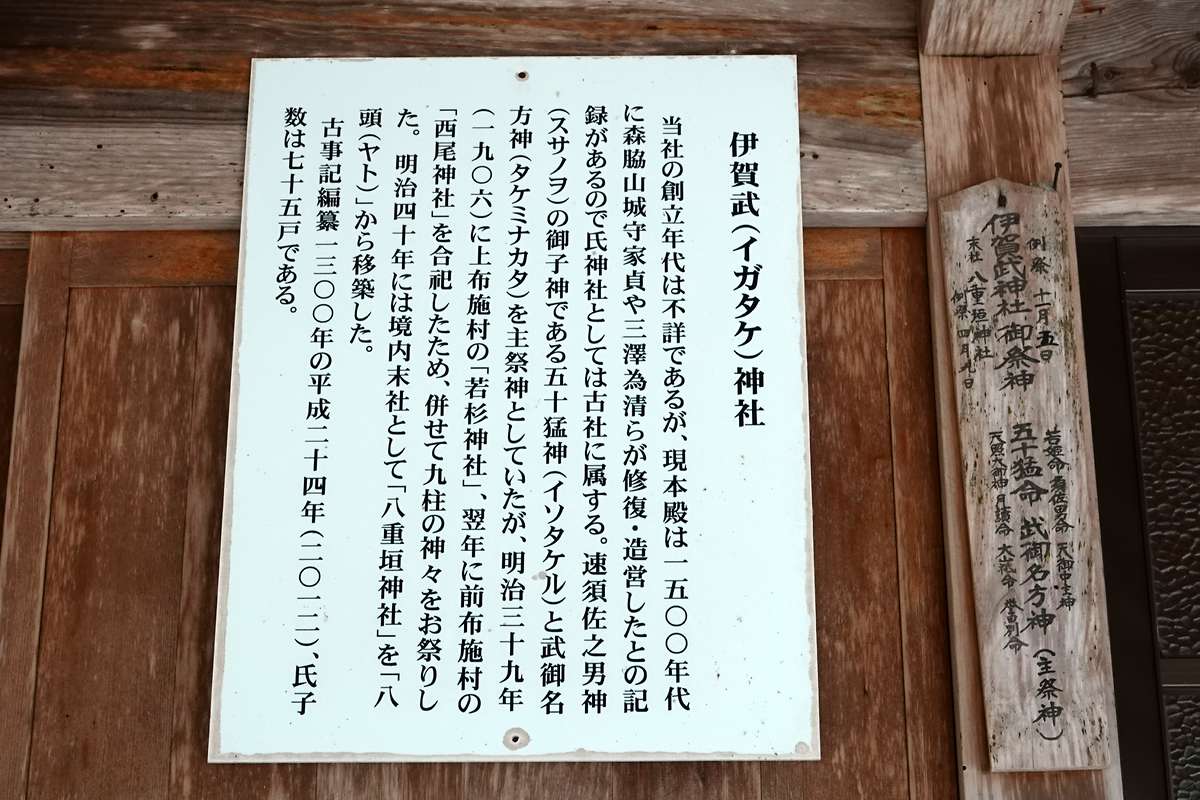 伊賀武（イガタケ）神社
当社の創立年代は不詳であるが、現本殿は一五〇〇年代
に森脇山城守家貞や三澤為清らが修復・造営したとの記
録があるので氏神社としては古社に属する。速須佐之男神
（スサノヲ）の御子神である五十猛神（イソタケル）と武御名
方神（タケミナカタ）を主祭神としていたが、明治三十九年
（一九〇六）に上布施村の「若杉神社」、翌年に前布施村の
「西尾神社」を合祀したため、併せて九柱の神々をお祭りし
た。明治四十年には境内末社として「八重垣神社」を「八
頭（ヤト）」から移築した。
古事記編纂一三〇〇年の平成二十四年（二〇一二）、氏子
数は七十五戸である。
例祭 十一月五日
伊賀武神社御祭神
末社 八重垣神社
例祭 四月九日
若姫命 須佐男命 天御中主神
五十猛命 武御名方神（主祭神）
天照大御神 月讀命 大山祇命 誉田別命